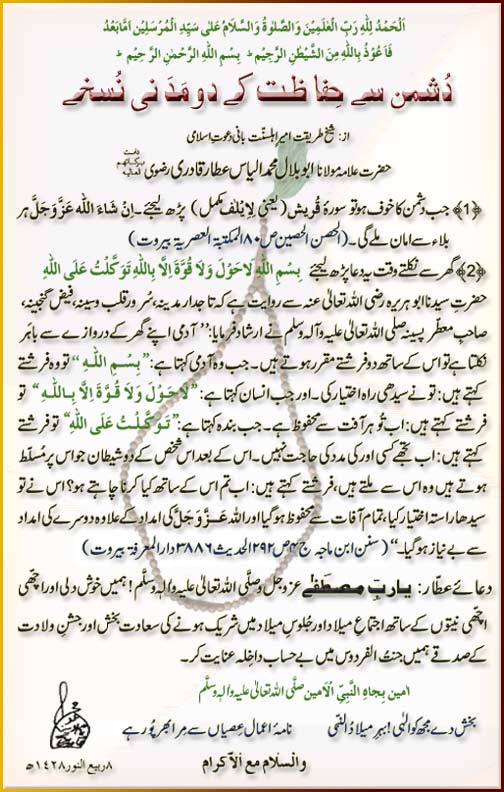 اَلْحَمْدُ لِلّٰهِ رَبِّ الْعٰلَمِيْنَ وَالصَّلٰوةُ وَالسَّلَامُ عَلٰى سَيِّدِ الْمُرْسَلِيْنَ اَمَّابَعْدُ
فَاَعُوْذُ بِاللّٰهِ مِنَ الشَّيْطٰنِ الرَّجِيْمِ ؕ بِسْمِ اللّٰهِ الرَّحْمٰنِ الرَّحِيْمِ ؕ
دُشمن سے حِفاظت کے دو مَدَنی نُسخے
از: شیخ طریقت امیر اہلسنّت بانیٔ دعوتِ اسلامی
حضرت علامہ مولانا ابو بلال محمد الیاس عطار قادری رضوی دامت برکاتہم العالیہ
﴿1﴾ جب دشمن کا خوف ہو تو سورۂ قُریش (یعنی لِاِیْلٰفِ مکمل) پڑھ لیجئے۔ اِنْ شَاءَ اللّٰه عَزَّوَجَلَّ ہر
بلاء سے امان ملے گی۔ (الحصن الحصین ص ۸۰ المکتبة العصریة بیروت)
﴿2﴾ گھر سے نکلتے وقت یہ دعا پڑھ لیجئے بِسْمِ اللّٰهِ لَاحَوْلَ وَلَا قُوَّةَ اِلَّا بِاللّٰهِ تَوَكَّلْتُ عَلَى اللّٰهِ
حضرتِ سیدنا ابو ہریرہ رضی اللہ تعالیٰ عنہ سے روایت ہے کہ تاجدارِ مدینہ، سُرورِ قلب و سینہ، فیض گنجینہ،
صاحبِ معطّر پسینہ صلی اللہ تعالیٰ علیہ واٰلہ وسلم نے ارشاد فرمایا: ’’آدمی اپنے گھر کے دروازے سے باہَر
نکلتا ہے تو اس کے ساتھ دو فرشتے مقرر ہوتے ہیں۔ جب وہ آدمی کہتا ہے: ”بِسْمِ اللّٰهِ“ تو وہ فرشتے
کہتے ہیں: تو نے سیدھی راہ اختیار کی۔ اور جب انسان کہتا ہے: ”لَاحَوْلَ وَلَا قُوَّةَ اِلَّا بِاللّٰهِ“ تو
فرشتے کہتے ہیں: اب تُو ہر آفت سے محفوظ ہے۔ جب بندہ کہتا ہے: ”تَوَكَّلْتُ عَلَى اللّٰهِ“ تو فرشتے
کہتے ہیں: اب تجھے کسی اور کی مدد کی حاجت نہیں۔ اس کے بعد اس شخص کے دو شیطان جو اس پر مُسلّط
ہوتے ہیں وہ اس سے ملتے ہیں، فرشتے کہتے ہیں: اب تم اس کے ساتھ کیا کرنا چاہتے ہو؟ اس نے تو
سیدھا راستہ اختیار کیا، تمام آفات سے محفوظ ہوگیا اور اللہ عَزَّوَجَلَّ کی امداد کے علاوہ دوسرے کی امداد
سے بے نیاز ہو گیا۔‘‘ (سنن ابن ماجہ ج۴ ص۲۹۲ الحدیث ۳۸۸۶ دار المعرفة بیروت)
دعائے عطار: یاربِّ مصطفٰے عزوجل وصلَّی اللہ تعالیٰ علیہ والہٖ وسلَّم! ہمیں خوش دلی اور اچھی
اچھی نیّتوں کے ساتھ اجتماعِ میلاد اور جُلوسِ میلاد میں شریک ہونے کی سعادت بخش اور جشنِ ولادت
کے صدقے ہمیں جنتُ الفردوس میں بے حساب داخِلہ عنایت کر۔
امین بِجاہِ النَّبِیِّ الْاَمین صلَّی اللہ تعالیٰ علیہ والہٖ وسلَّم
بخش دے مجھ کو الٰہی! بہرِ میلادُ النبی نامۂ اعمال عِصیاں سے مرا بھرپُور ہے
والسلام مع الاکرام
۸ ربیع النور ۱۴۲۸ھ